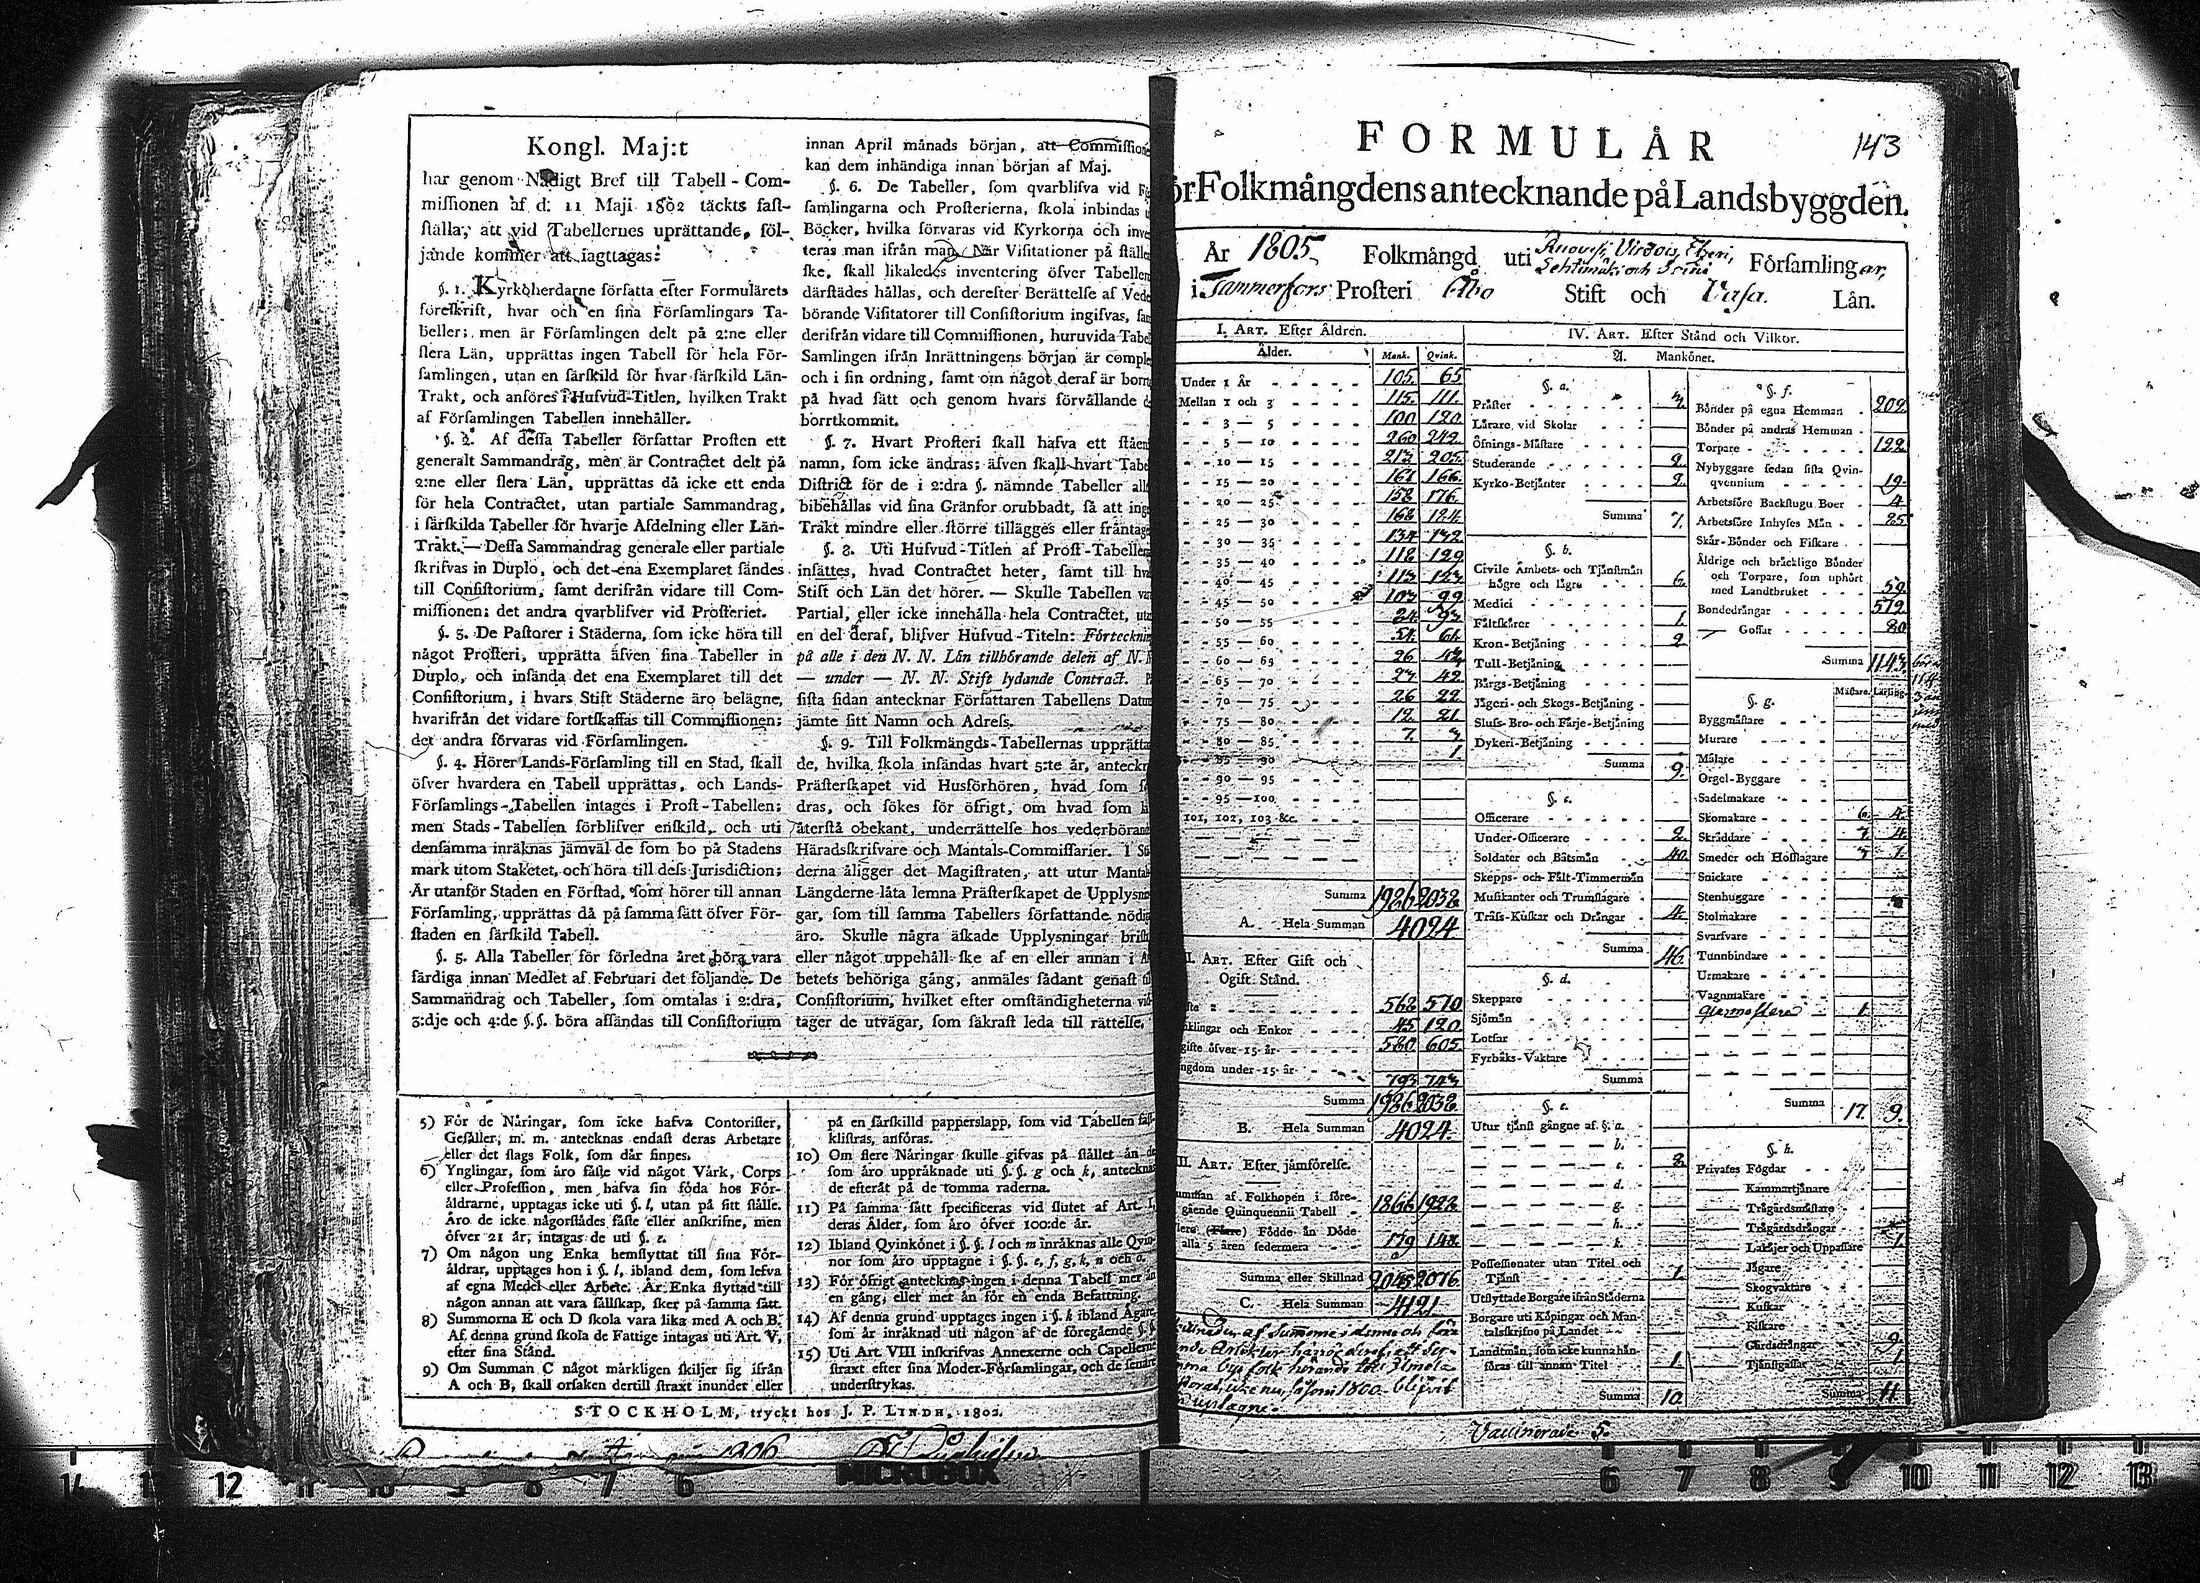 Kongl. Maj:t
har genom Nådigt Bref till Tabell-Com-
miſſionen af d: 11 Maji 1802 täckts faſt-
ſtälla, att vid Tabellernes uprättande, föl-
jande kommer att iagttagas:
§. 1. Kyrkoherdarne författa efter Formulärets
föreſkrift, hvar och en ſina Förſamlingars Ta-
beller; men är Förſamlingen delt på 2:ne eller
flera Län, upprättas ingen Tabell för hela För-
ſamlingen, utan en ſärſkild för hvar ſärſkild Län-
Trakt, och anföres i Hufvud-Titlen, hvilken Trakt
af Förſamlingen Tabellen innehåller.
§. 2. Af deſſa Tabeller författar Proſten ett
generalt Sammandrag, men är Contractet delt på
2:ne eller flera Län, upprättas då icke ett enda
för hela Contractet, utan partiale Sammandrag,
i ſärſkilda Tabeller för hvarje Afdelning eller Län-
Trakt. — Deſſa Sammandrag generale eller partiale
ſkrifvas in Duplo, och det ena Exemplaret ſändes
till Conſiſtorium, ſamt derifrån vidare till Com-
miſſionen; det andra qvarblifver vid Proſteriet.
§. 3. De Paſtorer i Städerna, ſom icke höra till
något Proſteri, upprätta äfven ſina Tabeller in
Duplo, och inſända det ena Exemplaret till det
Conſiſtorium, i hvars Stift Städerne äro belägne,
hvarifrån det vidare fortſkaffas till Commiſſionen;
det andra förvaras vid Förſamlingen.
§. 4. Hörer Lands-Förſamling till en Stad, ſkall
öfver hvardera en Tabell upprättas, och Lands-
Förſamlings-Tabellen intages i Proſt-Tabellen;
men Stads-Tabellen förblifver enſkild, och uti
denſamma inräknas jämväl de ſom bo på Stadens
mark utom Staketet, och höra till deſs Jurisdiction;
Är utanför Staden en Förſtad, ſom hörer till annan
Förſamling, upprättas då på ſamma ſätt öfver För-
ſtaden en ſärſkild Tabell.
§. 5. Alla Tabeller för förledna året böra vara
färdiga innan Medlet af Februari det följande. De
Sammandrag och Tabeller, ſom omtalas i 2:dra,
3:dje och 4:de §.§. böra afſändas till Conſiſtorium
innan April månads början, att Commiſſione
kan dem inhändiga innan början af Maj.
§. 6. De Tabeller, ſom qvarblifva vid
ſamlingarna och Proſterierna, ſkola inbindas
Böcker, hvilka förvaras vid Kyrkorna och inve
teras man ifrån man. När Viſitationer på ſtälle
ſke, ſkall likaledes inventering öfver Tabellen
därſtädes hållas, och derefter Berättelſe af Vede
börande Viſitatorer till Conſiſtorium ingifvas, ſam
derifrån vidare till Commiſſionen, huruvida Tabe
Samlingen ifrån Inrättningens början är comple
och i ſin ordning, ſamt om något deraf är bort
på hvad ſätt och genom hvars förvållande
borrtkommit.
§. 7. Hvart Proſteri ſkall hafva ett ſtåen
namn, ſom icke ändras; äfven ſkall hvart Tabe
Diſtrict för de i 2:dra §. nämnde Tabeller all
bibehållas vid ſina Gränſor orubbadt, ſå att ing
Trakt mindre eller ſtörre tillägges eller fråntage
§. 8. Uti Hufvud-Titlen af Proſt-Tabellen
inſättes, hvad Contractet heter, ſamt till hva
Stift och Län det hörer. — Skulle Tabellen va
Partial, eller icke innehålla hela Contractet, ut
en del deraf, blifver Hufvud-Titeln: Förtecknin
på alle i den N. N. Län tillhörande delen af N.
— under — N. N. Stift lydande Contract.
ſiſta ſidan antecknar Författaren Tabellens Datum
jämte ſitt Namn och Adreſs.
§. 9. Till Folkmängds-Tabellernas upprätta
de, hvilka ſkola inſändas hvart 5:te år, anteckn
Präſterſkapet vid Husförhören, hvad ſom
dras, och ſökes för öfrigt, om hvad ſom
återſtå obekant, underrättelſe hos vederbörand
Häradsſkrifvare och Mantals-Commiſſarier. I Stä
derna åligger det Magiſtraten, att utur Mantal
Längderne låta lemna Präſterſkapet de Upplysn
gar, ſom till ſamma Tabellers författande nödi
äro. Skulle några äſkade Upplysningar briſt
eller något uppehåll ſke af en eller annan i A
betets behöriga gång, anmäles ſådant genaſt
Conſiſtorium, hvilket efter omſtändigheterna vid
tager de utvägar, ſom ſäkraſt leda till rättelſe.
5) För de Näringar, ſom icke hafva Contoriſter,
Geſäller, m. m. antecknas endaſt deras Arbetare
eller det ſlags Folk, ſom där finnes.
6) Ynglingar, ſom äro fäſte vid något Värk, Corps
eller Profeſſion, men hafva ſin föda hos För-
äldrarne, upptagas icke uti §. l, utan på ſitt ſtälle.
Äro de icke någorſtädes fäſte eller anſkrifne, men
öfver 21 år, intagas de uti §. e.
7) Om någon ung Enka hemflyttat till ſina För-
äldrar, upptages hon i §. l, ibland dem, ſom lefva
af egna Medel eller Arbete. Är Enka flyttad till
någon annan att vara ſällſkap, ſker på ſamma ſätt.
8) Summorna E och D ſkola vara lika med A och B.
Af denna grund ſkola de Fattige intagas uti Art. V,
efter ſina Stånd.
9) Om Summan C något märkligen ſkiljer ſig ifrån
A och B, ſkall orſaken dertill ſtraxt inunder eller
på en ſärſkilld papperslapp, ſom vid Tabellen faſt-
kliſtras, anföras.
10) Om flere Näringar ſkulle gifvas på ſtället än de
ſom äro uppräknade uti §. §. g och k, anteckna
de efteråt på de tomma raderna.
11) På ſamma ſätt ſpecificeras vid ſlutet af Art. I,
deras Ålder, ſom äro öfver 100:de år.
12) Ibland Qvinkönet i §. §. l och m inräknas alle Qvin-
nor ſom äro upptagne i §. §. e, f, g, k, n och o.
13) För öfrigt antecknas ingen i denna Tabell mer än
en gång, eller mer än för en enda Befattning.
14) Af denna grund upptages ingen i §. k ibland Ägare
ſom är inräknad uti någon af de föregående §. §.
15) Uti Art. VIII inſkrifvas Annexerne och Capellerne
ſtraxt efter ſina Moder-Förſamlingar, och de ſenare
underſtrykas.
STOCKHOLM, tryckt hos J. P. LINDH, 1802.
1806
MICROBOX
143
FORMULÄR
ör Folkmängdens antecknande på Landsbyggden.
År 1805 Folkmängd uti Ruovesi, Virdois, Etseri, Förſamlingar,
i Tammerfors Proſteri Åbo Stift och Vasa Län.
I. ART. Efter Åldren.
Ålder. Mank. Qvink.
Under 1 År 105. 65
Mellan 1 och 3 115. 111.
3 — 5 100 120
5 — 10 260 242
10 — 15 213 205
15 — 20 161 166
20 — 25 158 176
25 — 30
30 — 35 134 132
35 — 40 118 129
40 — 45 113
45 — 50 103 99
50 — 55
55 — 60 54. 61
60 — 65 26
65 — 70 42
70 — 75 26 22
75 — 80 12. 21.
80 — 85 7.
85 — 90 1.
90 — 95
95 — 100
101, 102, 103 &c.
Summa 1986 2038
A. Hela Summan 4024
II. ART. Efter Gift och
Ogift Stånd.
562 570
klingar och Enkor 45 120
gifte öfver 15 år 580 605
ngdom under 15 år 793 743
Summa 1986 2038
B. Hela Summan 4024
III. ART. Efter jämförelſe.
umman af Folkhopen i före-
gående Quinquennii Tabell 1866 1928
Födde än Döde
alla 5 åren ſedermera 179 148
Summa eller Skillnad 2045 2076
C. Hela Summan 4121
IV. ART. Efter Stånd och Vilkor.
A. Mankönet.
§. a.
Präſter
Lärare vid Skolar
Öfnings-Mäſtare
Studerande 2
Kyrko-Betjänter 2
Summa 7.
§. b.
Civile Ämbets- och Tjänſtmän
högre och lägre 6.
Medici
Fältſkärer 1.
Kron-Betjäning 2
Tull-Betjäning
Bärgs-Betjäning
Jägeri- och Skogs-Betjäning
Sluſs- Bro- och Färje-Betjäning
Dykeri-Betjäning
Summa 9.
§. c.
Officerare
Under-Officerare 2
Soldater och Båtsmän 40
Skepps- och Fält-Timmermän
Muſikanter och Trumſlagare
Träſs-Kuſkar och Drängar 4
Summa 46.
§. d.
Skeppare
Sjömän
Lotſar
Fyrbåks-Vaktare
Summa
§. e.
Utur tjänſt gångne af §. a.
b.
c.
d.
g.
h.
k.
Poſſeſſionater utan Titel och
Tjänſt 1
Utflyttade Borgare ifrån Städerna
Borgare uti Köpingar och Man-
talsſkrifne på Landet
Landtmän, ſom icke kunna hän-
föras till annan Titel 1
Summa 10.
§. f.
Bönder på egna Hemman 202
Bönder på andras Hemman
Torpare 122
Nybyggare ſedan ſiſta Qvin-
qvennium 19
Arbetsföre Backſtugu Boer 4
Arbetsföre Inhyſes Män 25
Skär-Bönder och Fiſkare
Äldrige och bräcklige Bönder
och Torpare, ſom uphört
med Landtbruket 59.
Bondedrängar
— Goſſar 80
Summa 1143
§. g. Mäſtare. Lärling.
Byggmäſtare
Murare
Målare
Orgel-Byggare
Sadelmakare
Skomakare 6. 4.
Skräddare 7 4.
Smeder och Hofſlagare 1.
Snickare
Stenhuggare
Stolmakare
Svarfvare
Tunnbindare
Urmakare
Vagnmakare
Glasmästare 1
Summa 17. 9.
§. h.
Privates Fogdar
Kammartjänare
Trägårdsmäſtare
Trägårdsdrängar
Lakäjer och Uppaſſare 1.
Jägare
Skogvaktare
Kuſkar
Fiſkare
Gårdsdrängar 9.
Tjänſtgoſſar 1
Summa 11
Vaccinerade 5.
14 12 11 10 8 7 6
6 7 8 9 10 11 12 13